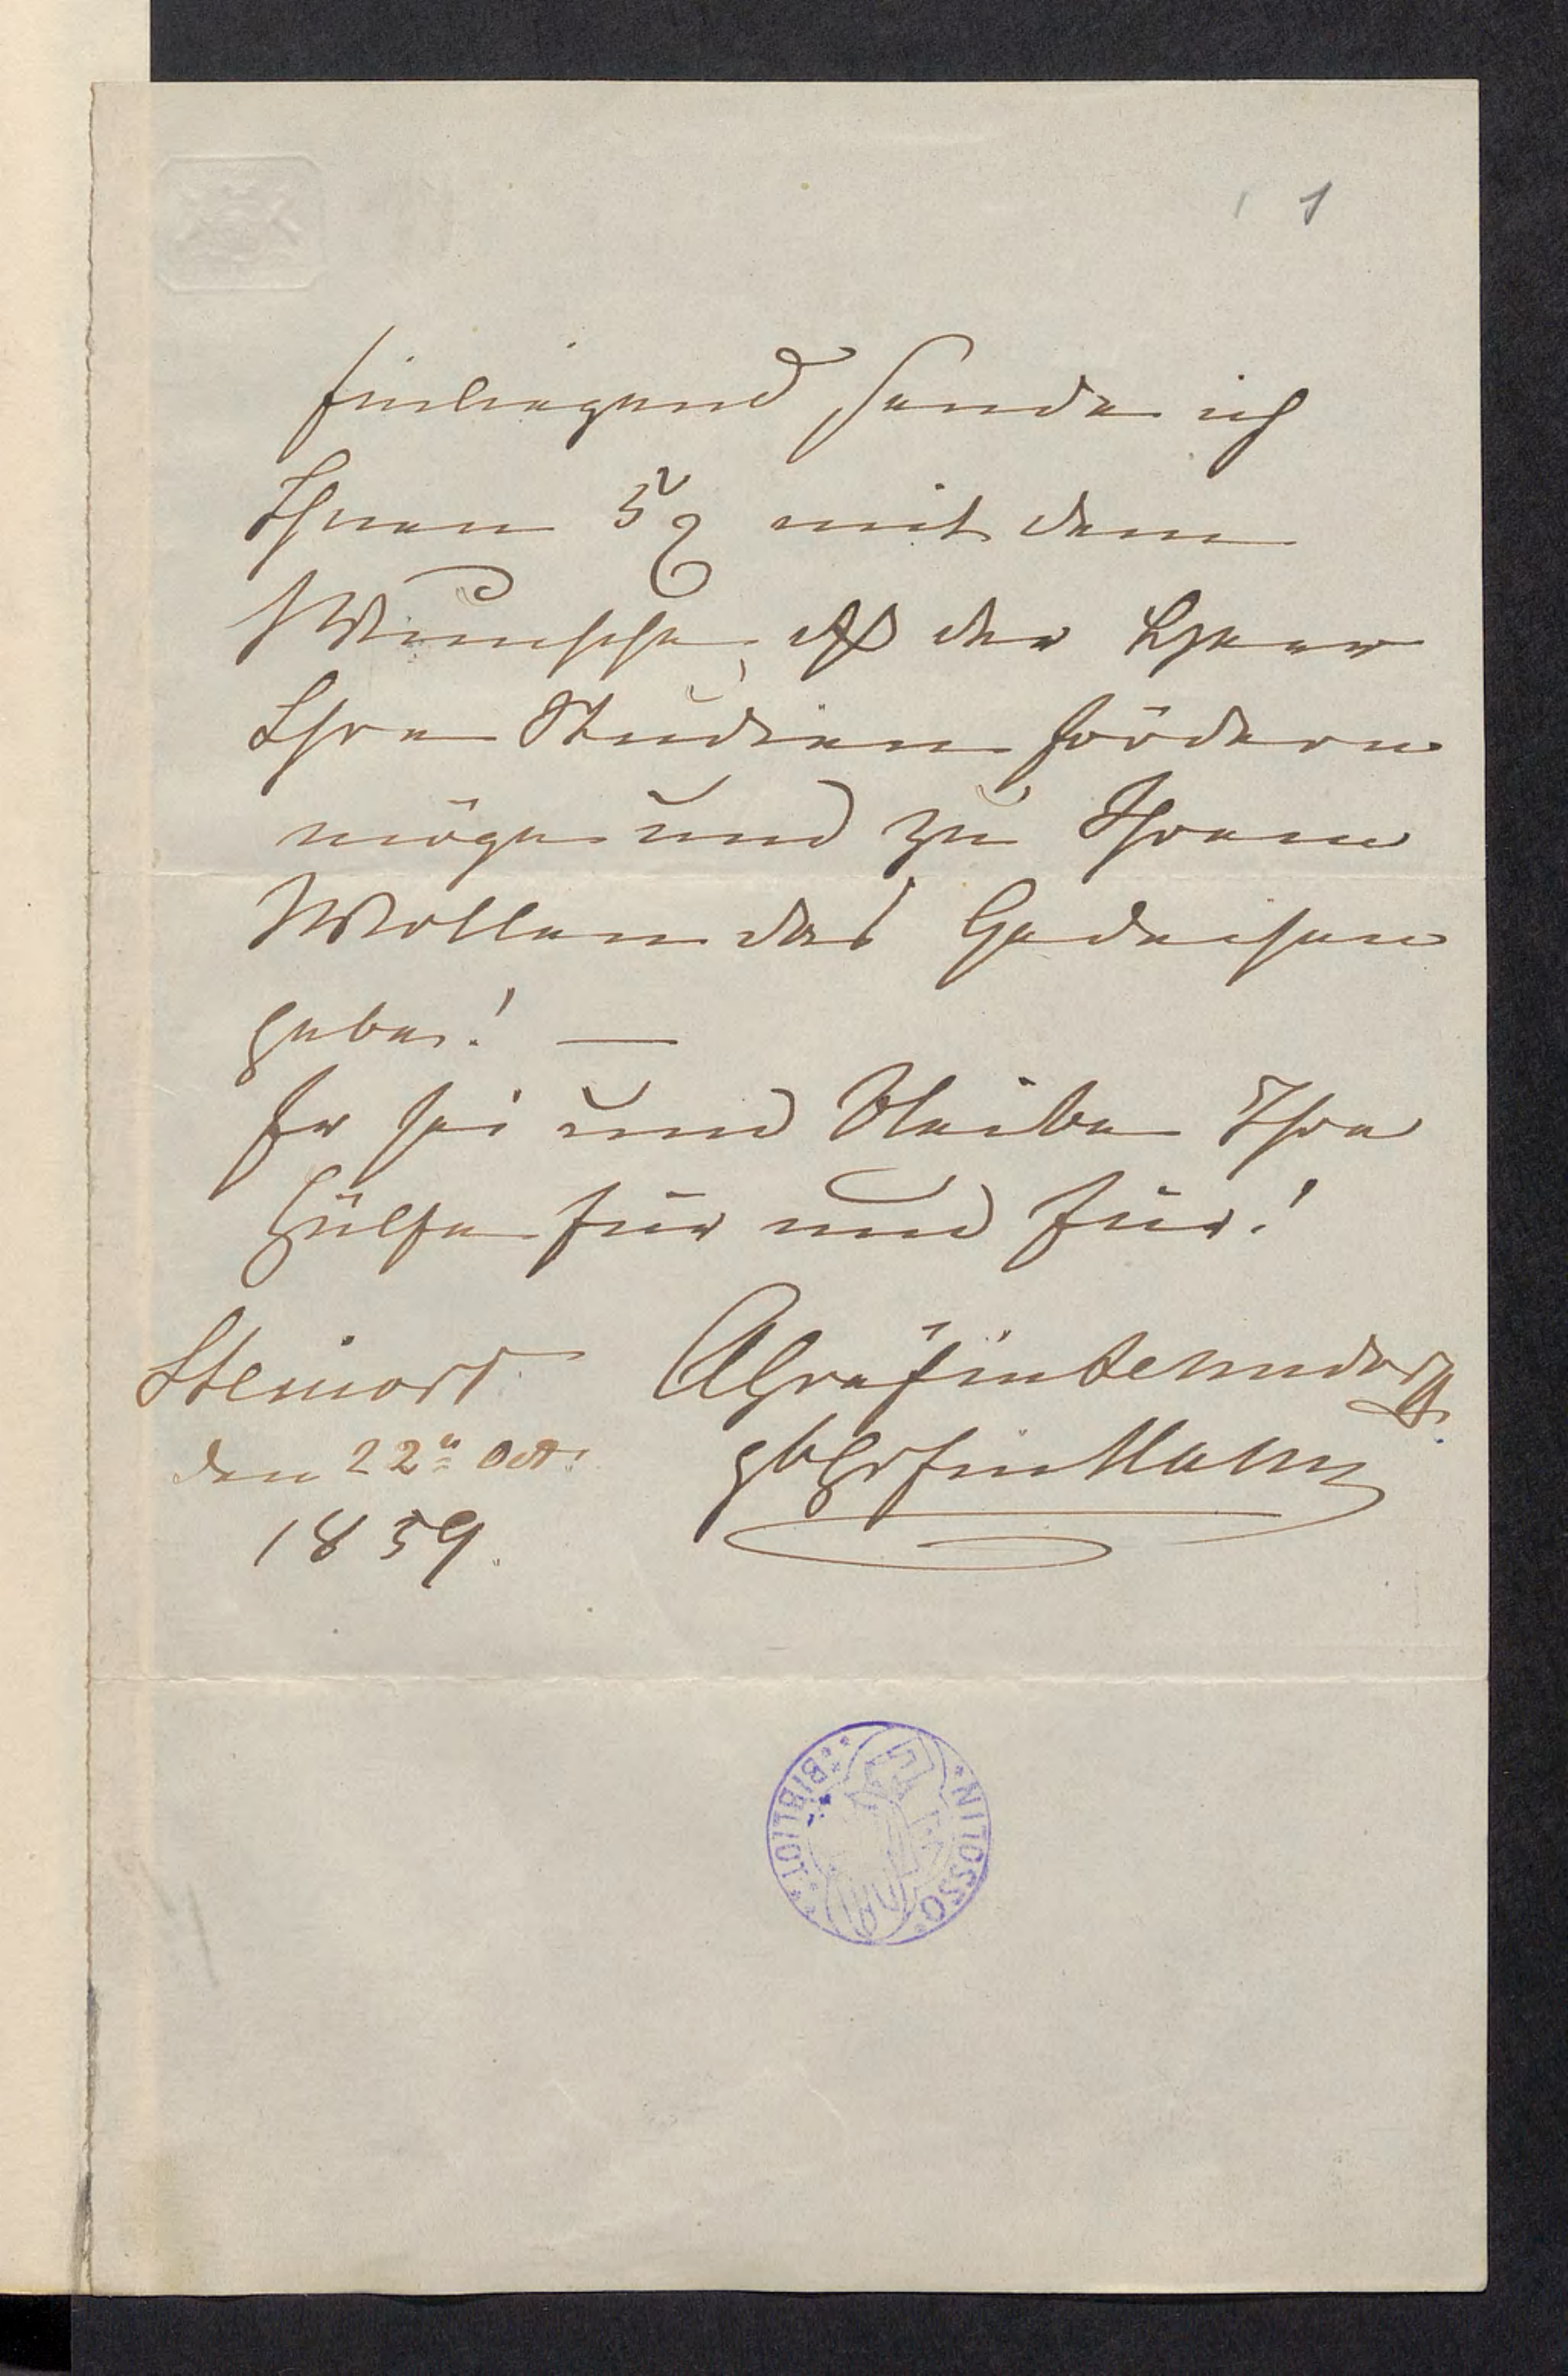 1
Einliegend sende ich
Ihnen 5 mit dem
Wunsche, daß der Herr
Ihre Studien fördern
möge und zu Ihrem
Wollen das Gedeihen
gebe! —
Er sei und bleibe Ihre
Hülfe für und für!
Steinort
den 22ⁿ Oct:
1859.
A Gräfin Lehndorff
gb Grfin Hahn
BIBLIOT.
OSSOLIN